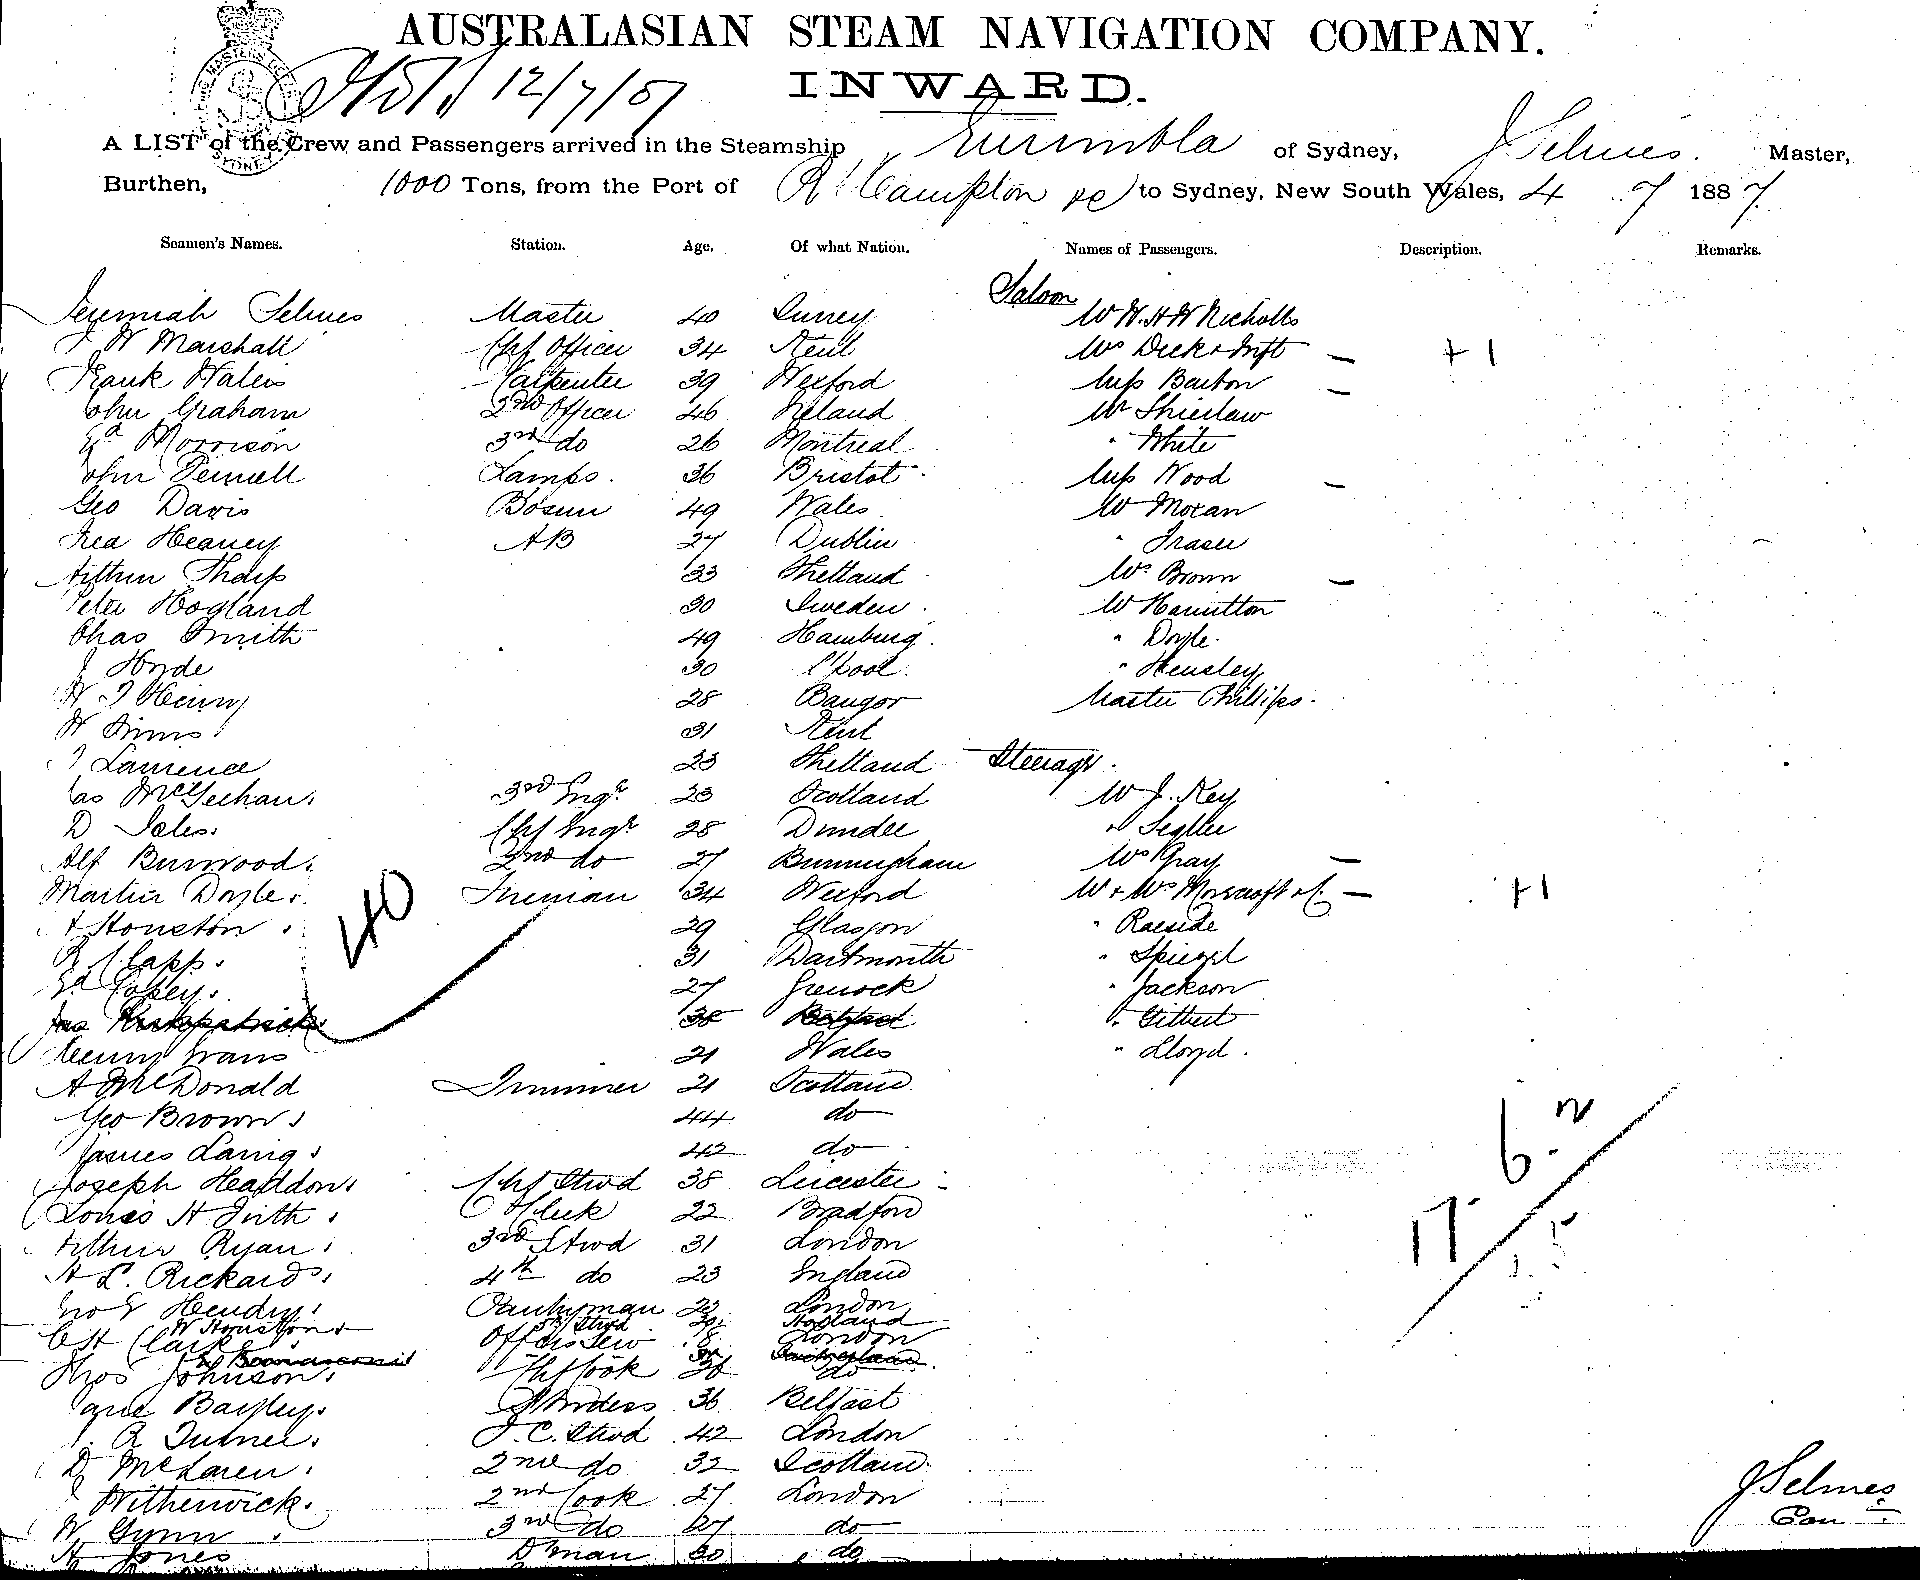 AUSTRALASIAN STEAM NAVIGATION COMPANY.
INWARD.
12/7/87
A LIST of the Crew and Passengers arrived in the Steamship Eurimbla of Sydney, J Selmes. Master,
Burthen, 1000 Tons, from the Port of R'Hampton &c to Sydney, New South Wales, 4 7 1887.
Seamen's Names. Station. Age. Of what Nation. Names of Passengers. Description. Remarks.
Saloon
Jeremiah Selmes Master 40 Surrey
J W Marshall Chf Officer 34 Kent + 1
Frank Carpenter 39 Wexford Miss Barton
John Graham 2nd Officer 46 Ireland Mr
Ed Morrison 3rd do 26 Montreal " White
John Pennell Lamps. 36 Bristol Miss Wood
Geo Davis Bosun 49 Wales Mr Moran
Fred Heaney AB 27 Dublin " Fraser
Arthur Tharp 33 Shetland Mrs Brown
Peter Hogland 30 Sweden. Mr Hamilton
Chas Smith 49 Hamburg. " Doyle
J Hyde 30 L'pool. " Hensley
W J Henry 28 Bangor Master Phillips.
W 31 Kent
J Lawrence 23 Shetland Steerage.
Jas McGeehan. 3rd Engr 23 Scotland Mr J. Key
D Chf Engr 28 Dundee
Alf Burwood. 2nd do 27 Birmingham Mrs Gray
Martin Doyle. Fireman 34 Wexford Mr & Mrs +1
A Houston. 29 Glasgow " Raeside
R Clapp. 31 Dartmouth " Spiegel
Ed 27 Greenock " Jackson
Jas Kirkpatrick 38 Belfast " Gilbert
Henry Evans 21 Wales " Lloyd.
40
A McDonald Trimmer 21 Scotland
Geo Brown. 44 do
James Laing. 42 do
Joseph Headdon. Chf Stwd 38 Leicester
Louis H Firth. Clerk 22 Bradford
Arthur Ryan. 3rd Stwd 31 London
H L. Rickards. 4th do 23 England
Hendry. Pantryman 23 London
W Houston Stwd
C H Clark London
Thos Johnson. Chf Cook 36 do
Jane Bayley. Stwdess 36 Belfast
R Turner. F.C. Stwd 42 London
D McLaren. 2nd do 32 Scotland.
Witherwick. 2nd Cook 27 London
W Gynn. 3rd do 27 do
H Jones D'man 30 do
17
6
J Selmes